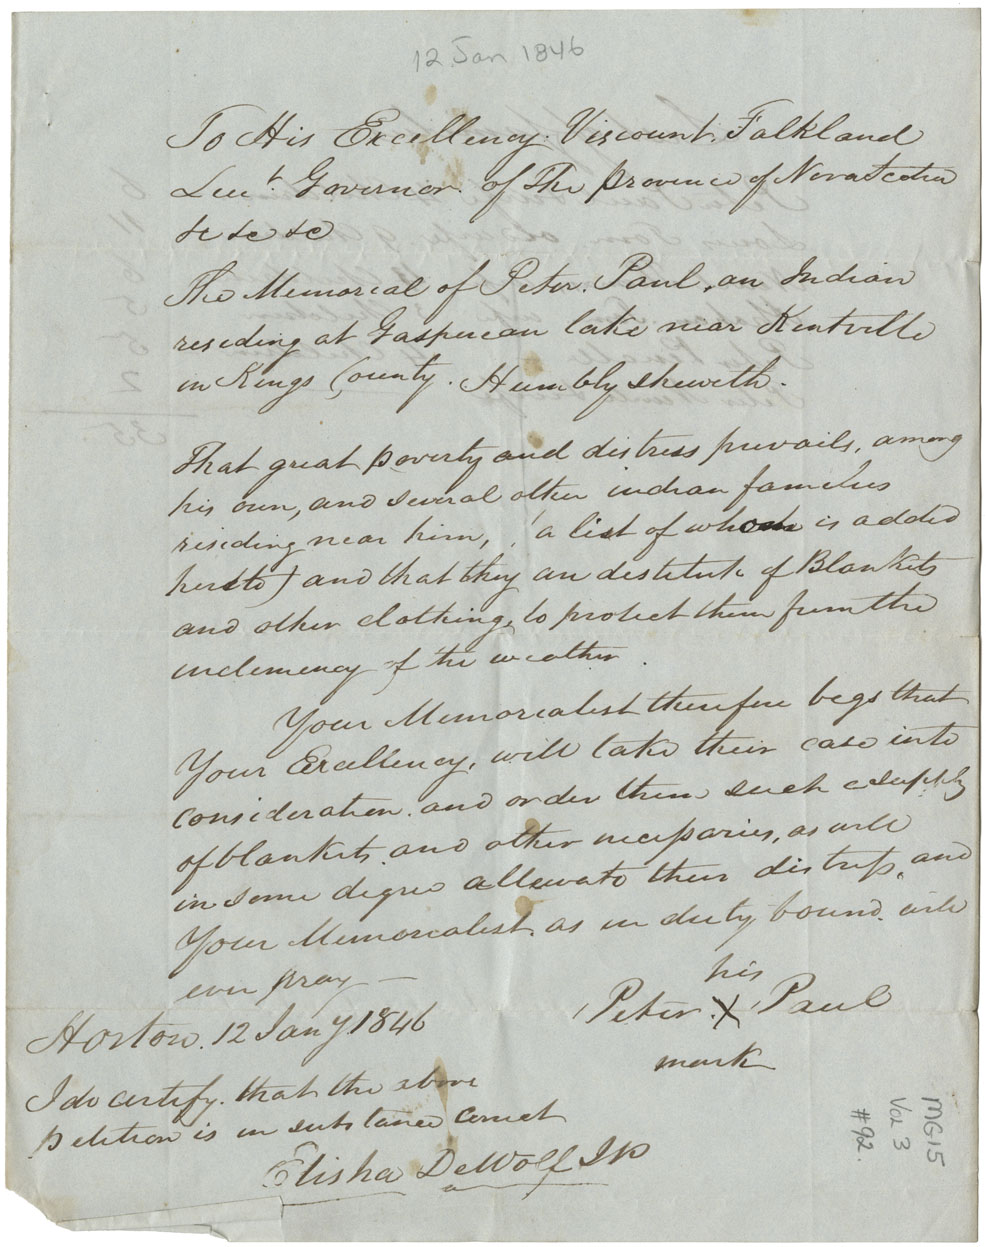 12 Jan 1846
To His Excellency Viscount Falkland
Lieut. Governor. of The province of Nova Scotia
&c &c &c
The Memorial of Peter. Paul, an Indian
residing at Gaspereau lake near Kentville
in Kings County. Humbly sheweth.
That great poverty and distress prevails, among
his own, and several other indian families
residing near him, (a list of whom is added
hereto) and that they are destitute of Blankets
and other clothing, to protect them from the
inclemency of the weather.
Your Memorialist therefore begs that
Your Excellency, will take their case into
consideration. and order them such a supply
of blankets. and other necessaries, as will
in some degree alleviate their distress, and
Your Memorialist. as in duty bound. will
ever pray —
his
Peter. X Paul
mark
Horton. 12 Jany 1846
I do certify. that the above
petition is in substance correct
Elisha DeWolf JP
MG15
Vol 3
#92.
6
11
6
5
5
2
35